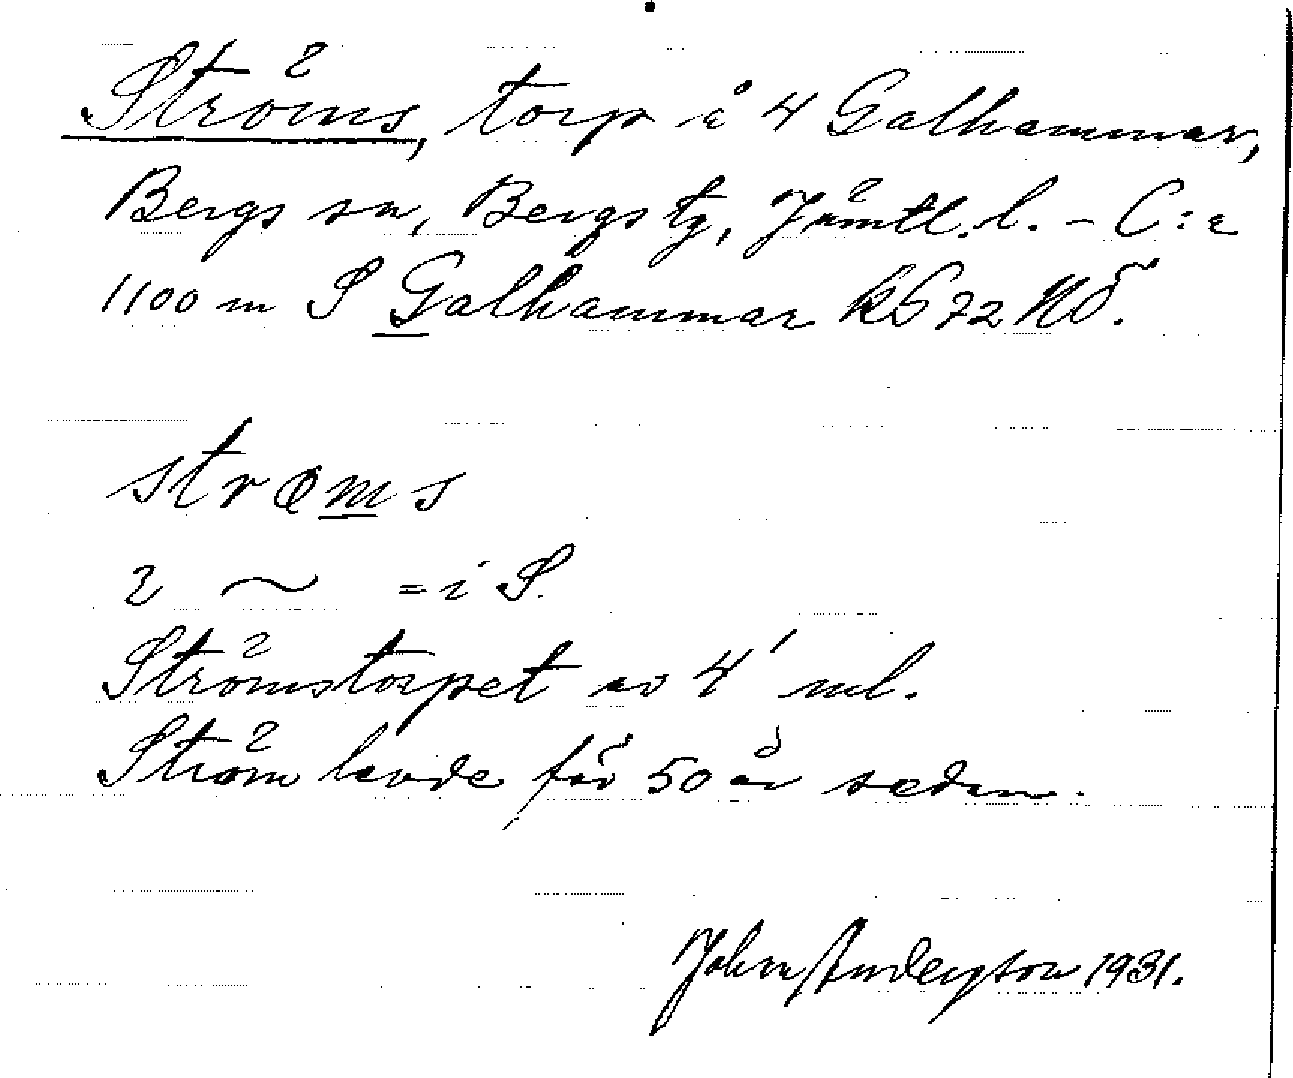 Ströms, torp å 4 Galhammar,
Bergs sn, Bergs tg, Jämtl. l. - C:a
1100 m S Galhammar kb 72 NO.
strøms
2 ~ = i S.
Strömstorpet av 4' ml.
Ström levde för 50 år sedan.
John Anderson 1931.